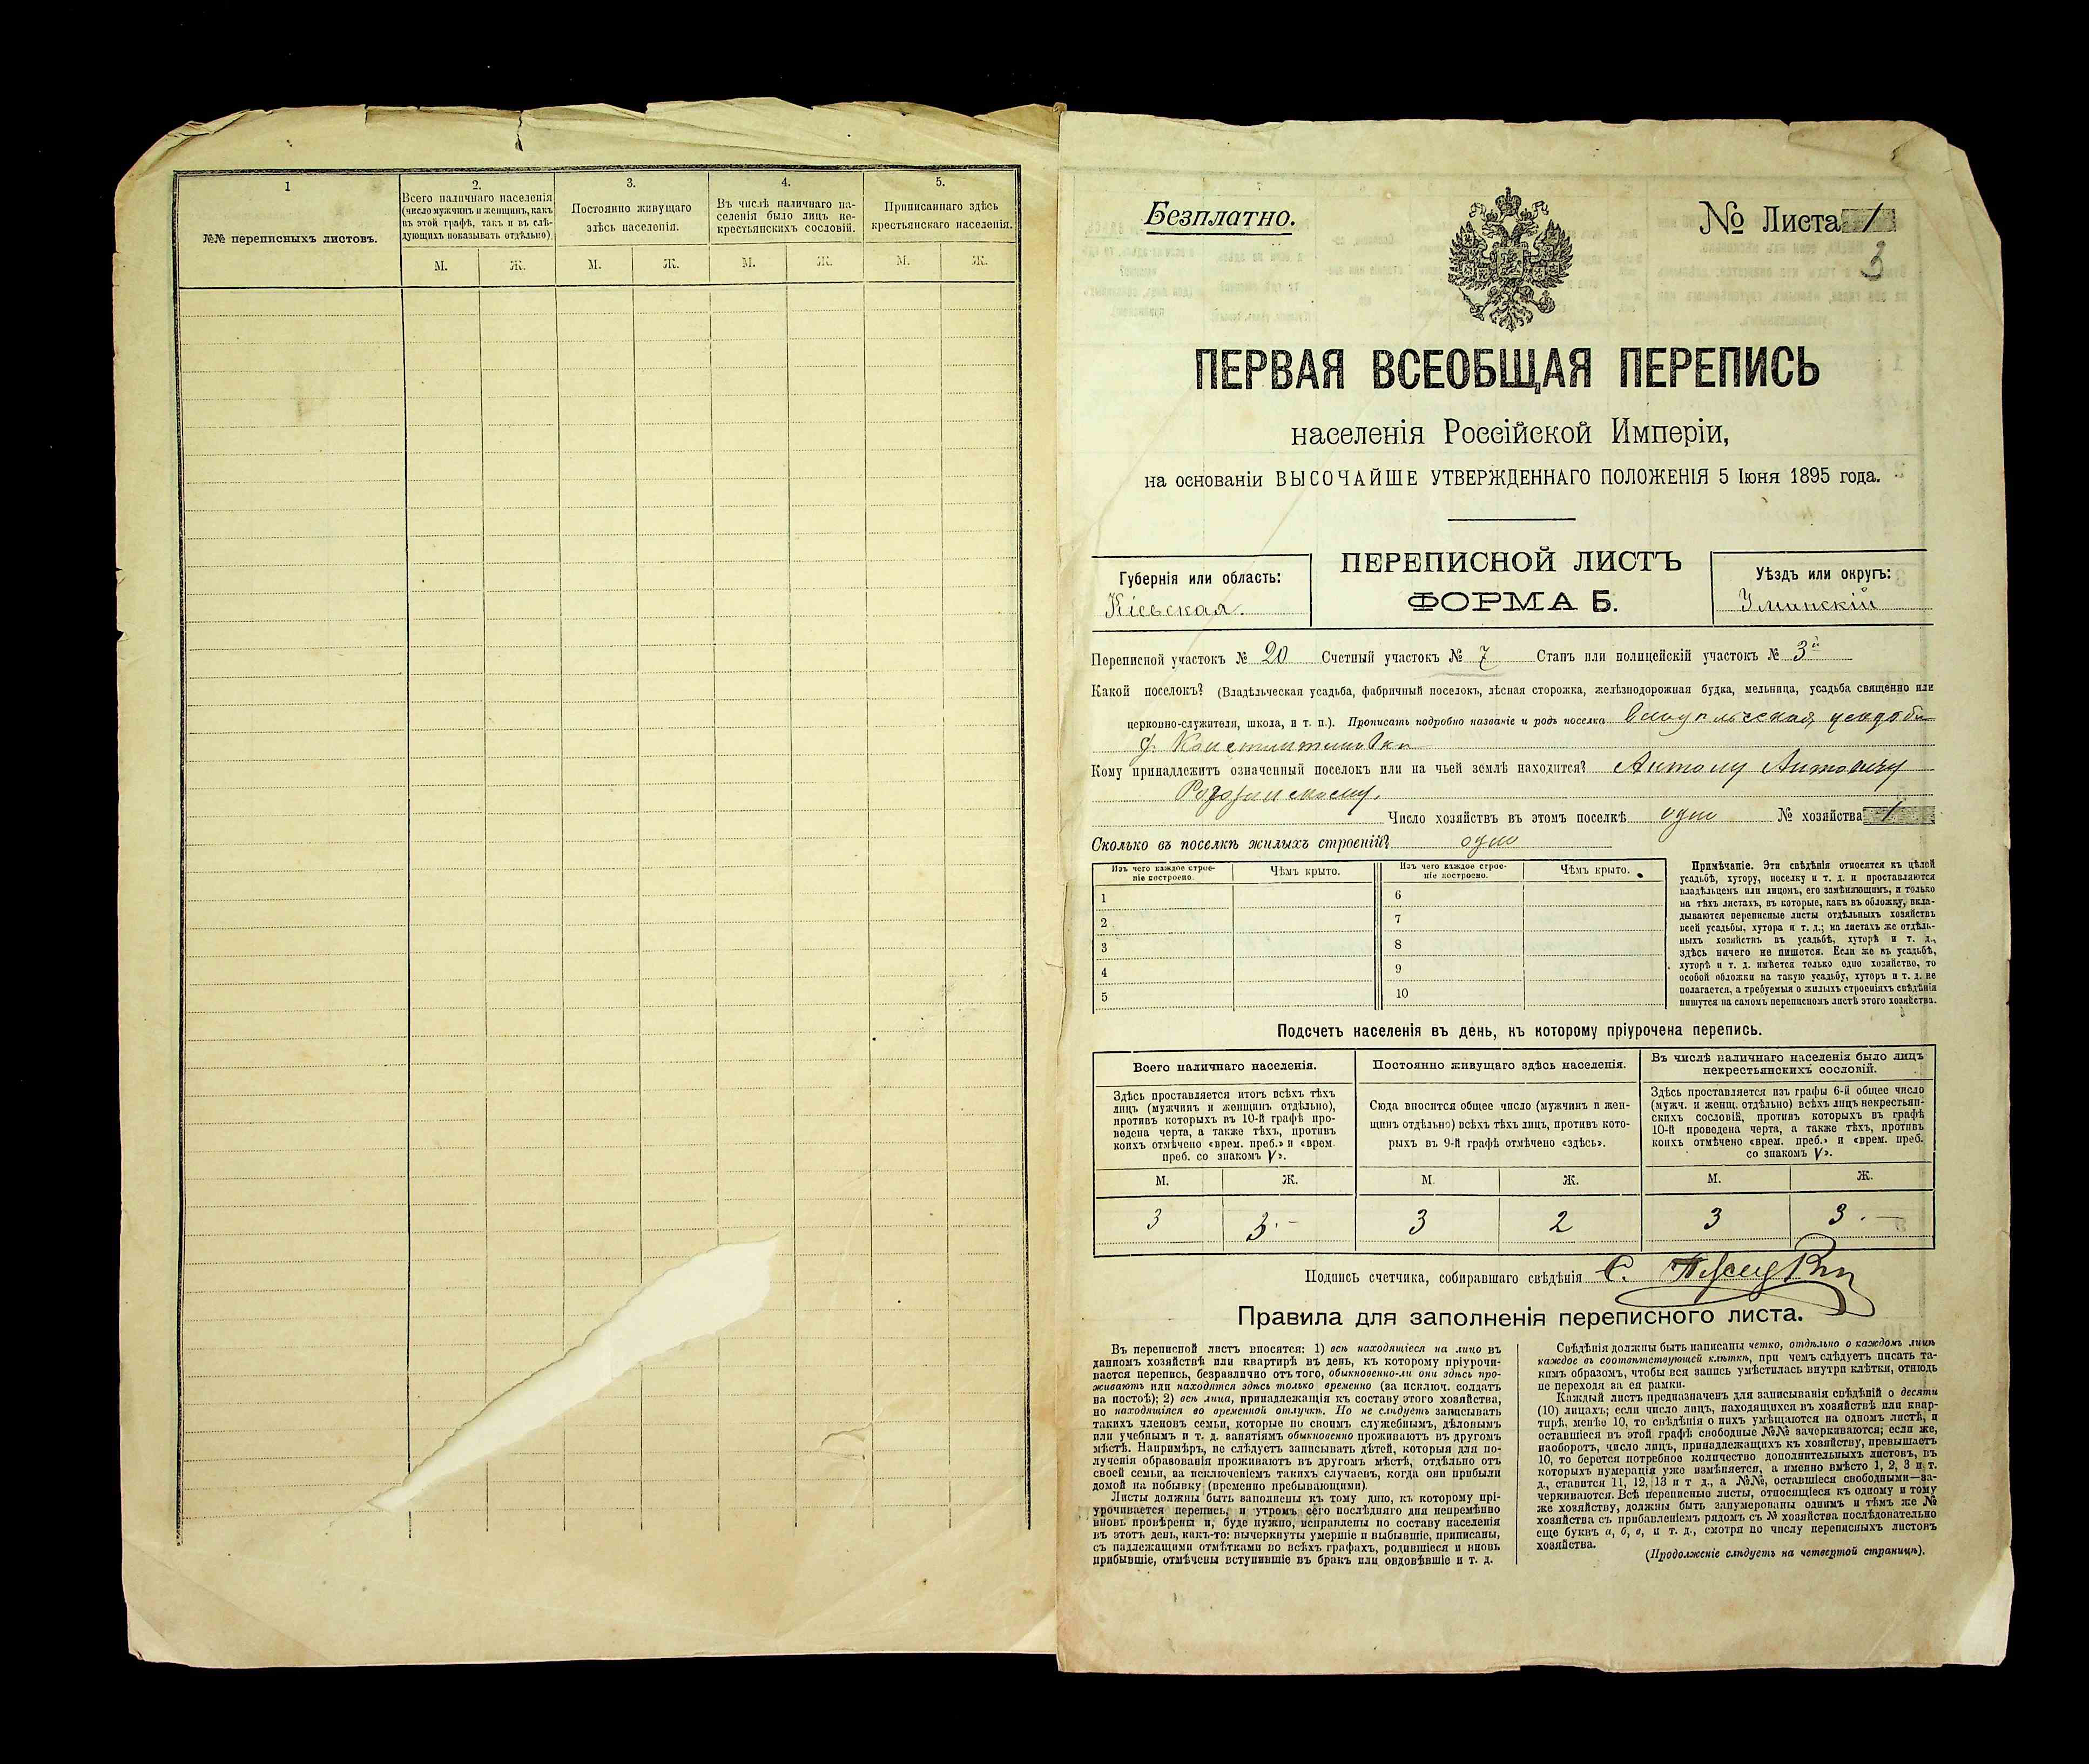 1
№№ переписныхъ листовъ.
2.
Всего наличнаго населенія
(число мужчинъ и женщинъ, какъ
въ этой графѣ, такъ и въ слѣ-
дующихъ показывать отдѣльно).
3.
Постоянно живущаго
здѣсь населенія.
4.
Въ числѣ наличнаго на-
селенія было лицъ не-
крестьянскихъ сословій.
5.
Приписаннаго здѣсь
крестьянскаго населенія.
М. Ж. М. Ж. М. Ж. М. Ж.
Безплатно.
№ Листа 1
3
ПЕРВАЯ ВСЕОБЩАЯ ПЕРЕПИСЬ
населенія Россійской Имперіи,
на основаніи ВЫСОЧАЙШЕ УТВЕРЖДЕННАГО ПОЛОЖЕНІЯ 5 Іюня 1895 года.
Губернія или область:
Кіевская.
ПЕРЕПИСНОЙ ЛИСТЪ
ФОРМА Б.
Уѣздъ или округъ:
Уманскій
Переписной участокъ № 20 Счетный участокъ № 7 Станъ или полицейскій участокъ № 3й
Какой поселокъ? (Владѣльческая усадьба, фабричный поселокъ, лѣсная сторожка, желѣзнодорожная будка, мельница, усадьба священно или
церковно-служителя, школа, и т. п.). Прописать подробно названіе и родъ поселка усадьба
Константиновка
Кому принадлежитъ означенный поселокъ или на чьей землѣ находится? Антону Антовичу
Число хозяйствъ въ этомъ поселкѣ одно № хозяйства 1
Сколько въ поселкѣ жилыхъ строеній? одно
Изъ чего каждое строе-
ніе построено.
Чѣмъ крыто.
Изъ чего каждое строе-
ніе построено.
Чѣмъ крыто.
1 6
2 7
3 8
4 9
5 10
Примѣчаніе. Эти свѣдѣнія относятся къ цѣлой
усадьбѣ, хутору, поселку и т. д. и проставляются
владѣльцемъ или лицомъ, его замѣняющимъ, и только
на тѣхъ листахъ, въ которые, какъ въ обложку, вкла-
дываются переписные листы отдѣльныхъ хозяйствъ
всей усадьбы, хутора и т. д.; на листахъ же отдѣль-
ныхъ хозяйствъ въ усадьбѣ, хуторѣ и т. д.,
здѣсь ничего не пишется. Если же въ усадьбѣ,
хуторѣ и т. д. имѣется только одно хозяйство, то
особой обложки на такую усадьбу, хуторъ и т. д. не
полагается, а требуемыя о жилыхъ строеніяхъ свѣдѣнія
пишутся на самомъ переписномъ листѣ этого хозяйства.
Подсчетъ населенія въ день, къ которому пріурочена перепись.
Всего наличнаго населенія.
Здѣсь проставляется итогъ всѣхъ тѣхъ
лицъ (мужчинъ и женщинъ отдѣльно),
противъ которыхъ въ 10-й графѣ про-
ведена черта, а также тѣхъ, противъ
коихъ отмѣчено «врем. преб.» и «врем.
преб. со знакомъ V».
Постоянно живущаго здѣсь населенія.
Сюда вносится общее число (мужчинъ и жен-
щинъ отдѣльно) всѣхъ тѣхъ лицъ, противъ кото-
рыхъ въ 9-й графѣ отмѣчено «здѣсь».
Въ числѣ наличнаго населенія было лицъ
некрестьянскихъ сословій.
Здѣсь проставляется изъ графы 6-й общее число
(мужч. и женщ. отдѣльно) всѣхъ лицъ некрестьян-
скихъ сословій, противъ которыхъ въ графѣ
10-й проведена черта, а также тѣхъ, противъ
коихъ отмѣчено «врем. преб.» и «врем. преб.
со знакомъ V».
М. Ж. М. Ж. М. Ж.
3 3.- 3 2 3 3.-
Подпись счетчика, собиравшаго свѣдѣнія С.
Правила для заполненія переписного листа.
Въ переписной листъ вносятся: 1) всѣ находящіеся на лицо въ
данномъ хозяйствѣ или квартирѣ въ день, къ которому пріурочи-
вается перепись, безразлично отъ того, обыкновенно-ли они здѣсь про-
живаютъ или находятся здѣсь только временно (за исключ. солдатъ
на постоѣ); 2) всѣ лица, принадлежащія къ составу этого хозяйства,
но находящіяся во временной отлучкѣ. Но не слѣдуетъ записывать
такихъ членовъ семьи, которые по своимъ служебнымъ, дѣловымъ
или учебнымъ и т. д. занятіямъ обыкновенно проживаютъ въ другомъ
мѣстѣ. Напримѣръ, не слѣдуетъ записывать дѣтей, которыя для по-
лученія образованія проживаютъ въ другомъ мѣстѣ, отдѣльно отъ
своей семьи, за исключеніемъ такихъ случаевъ, когда они прибыли
домой на побывку (временно пребывающими).
Листы должны быть заполнены къ тому дню, къ которому прі-
урочивается перепись, и утромъ сего послѣдняго дня непремѣнно
вновь провѣрены и, буде нужно, исправлены по составу населенія
въ этотъ день, какъ-то: вычеркнуты умершіе и выбывшіе, приписаны,
съ надлежащими отмѣтками во всѣхъ графахъ, родившіеся и вновь
прибывшіе, отмѣчены вступившіе въ бракъ или овдовѣвшіе и т. д.
Свѣдѣнія должны быть написаны четко, отдѣльно о каждомъ лицѣ
каждое въ соотвѣтствующей клѣткѣ, при чемъ слѣдуетъ писать та-
кимъ образомъ, чтобы вся запись умѣстилась внутри клѣтки, отнюдь
не переходя за ея рамки.
Каждый листъ предназначенъ для записыванія свѣдѣній о десяти
(10) лицахъ; если число лицъ, находящихся въ хозяйствѣ или квар-
тирѣ, менѣе 10, то свѣдѣнія о нихъ умѣщаются на одномъ листѣ, и
оставшіеся въ этой графѣ свободные №№ зачеркиваются; если же,
наоборотъ, число лицъ, принадлежащихъ къ хозяйству, превышаетъ
10, то берется потребное количество дополнительныхъ листовъ, въ
которыхъ нумерація уже измѣняется, а именно вмѣсто 1, 2, 3 и т.
д., ставится 11, 12, 13 и т д., а №№, оставшіеся свободными—за-
черкиваются. Всѣ переписные листы, относящіеся къ одному и тому
же хозяйству, должны быть занумерованы однимъ и тѣмъ же №
хозяйства съ прибавленіемъ рядомъ съ № хозяйства послѣдовательно
еще буквъ а, б, в, и т. д., смотря по числу переписныхъ листовъ
хозяйства.
(Продолженіе слѣдуетъ на четвертой страницѣ).